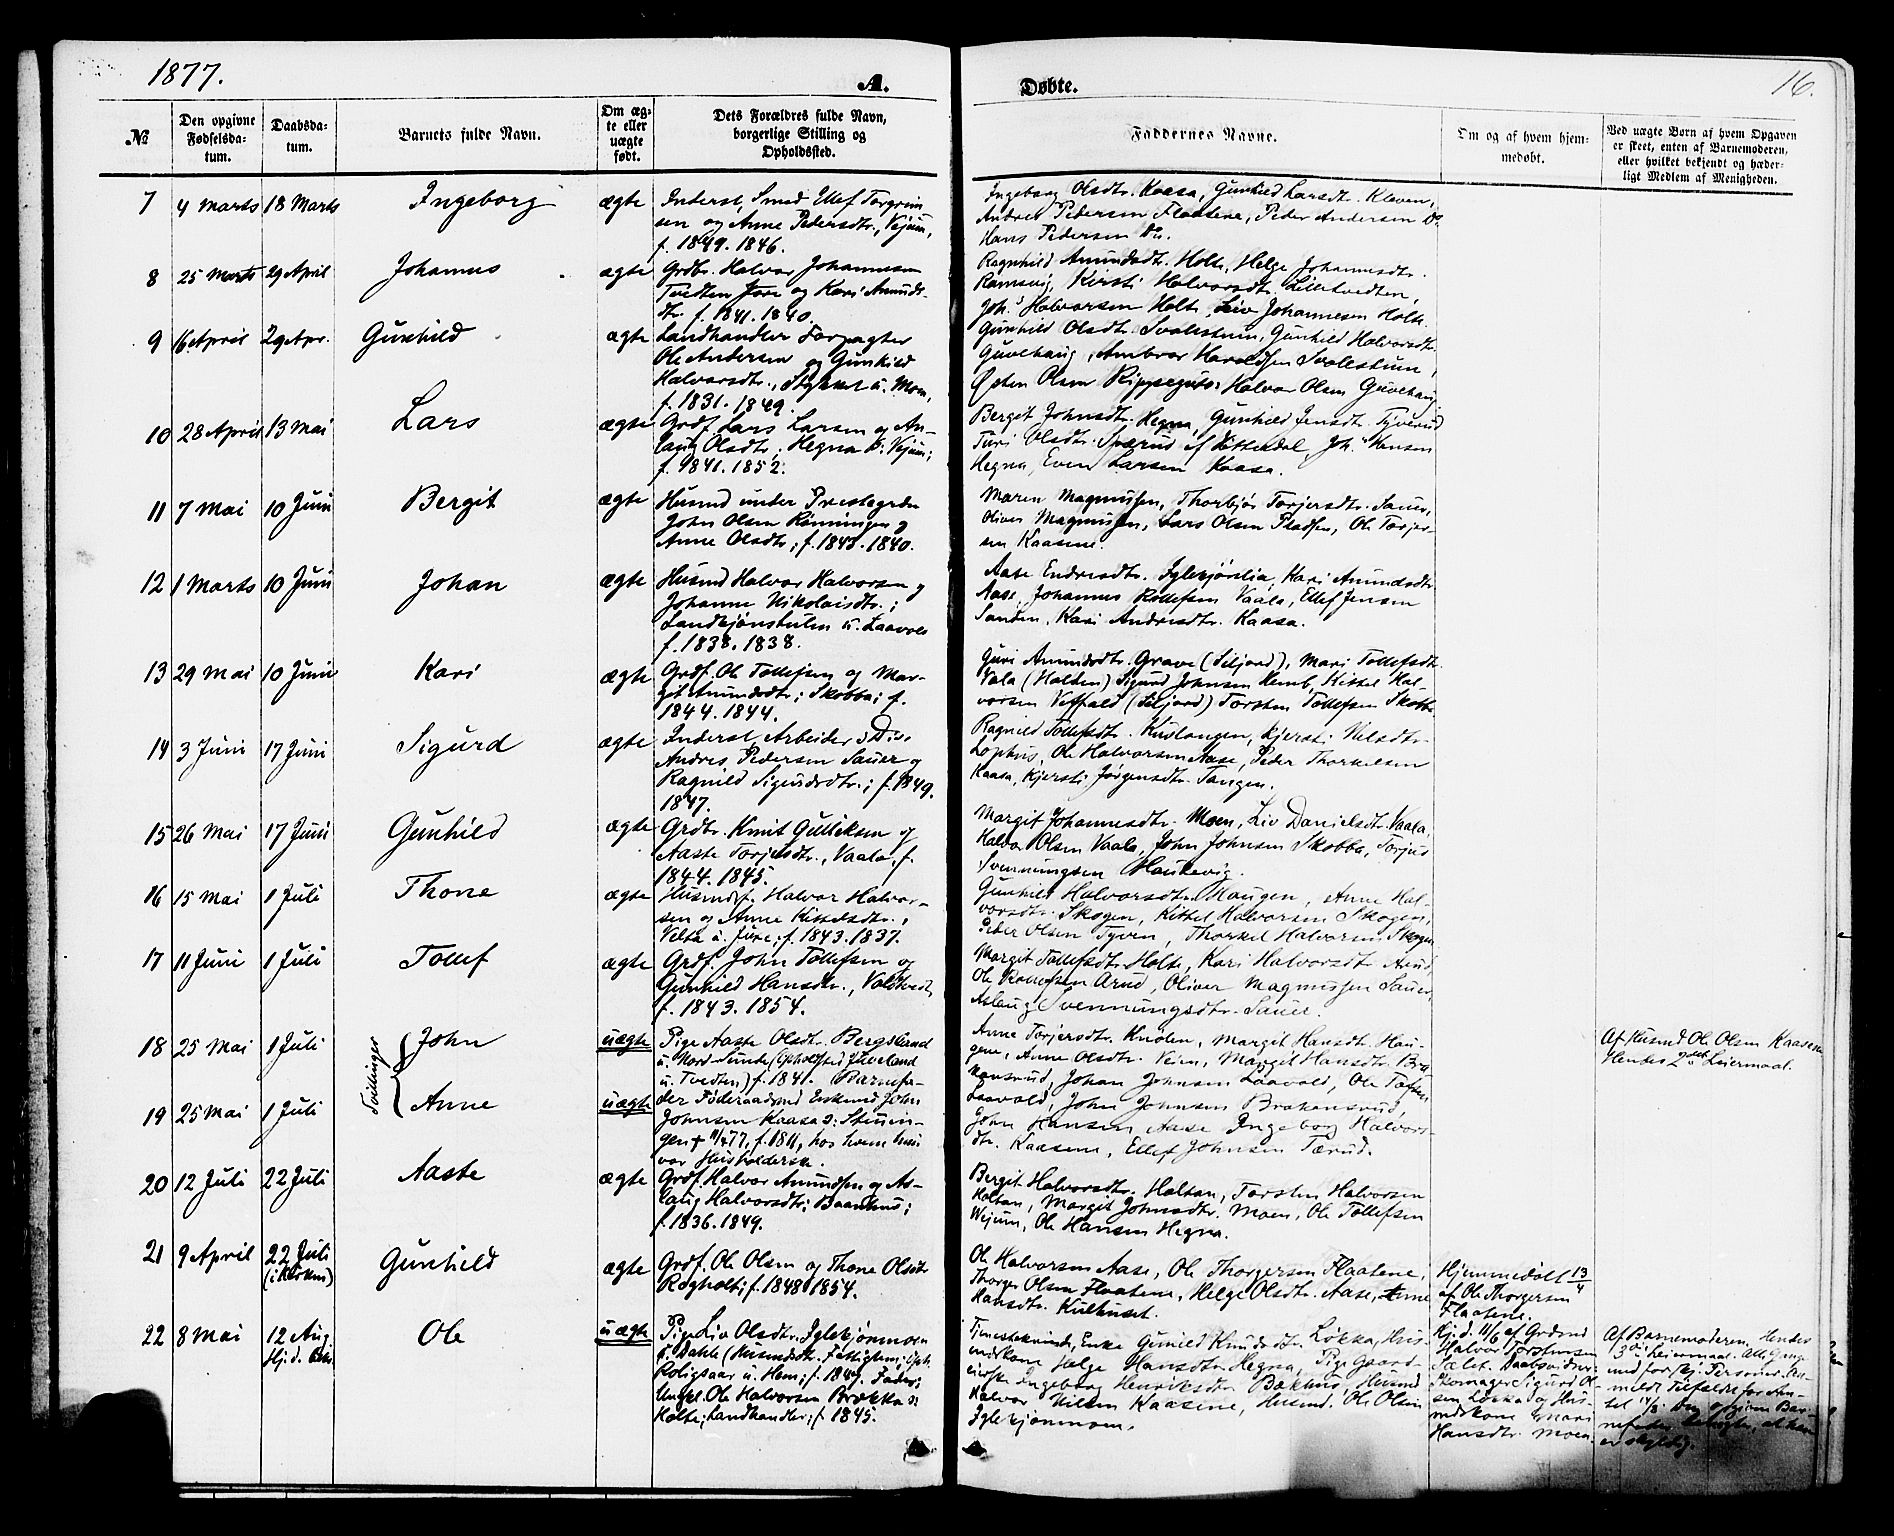 1877.
A.
Døbte.
16.
№
Den opgivne
Fødselsda-
tum.
Daabsda-
tum.
Barnets fulde Navn.
Om æg-
te eller
uægte
født.
Dets Forældres fulde Navn,
borgerlige Stilling og
Opholdssted.
Faddernes Navne.
Om og af hvem hjem-
medøbt.
Ved uægte Børn af hvem Opgaven
er skeet, enten af Barnemoderen,
eller hvilket bekjendt og hæder-
ligt Medlem af Menigheden.
7 4 Marts 18 Marts Ingeborg ægte
Inderst, Smed Ellef Torgrim
sen og Anne Pedersdtr., Vejum,
f. 1849. 1846.
Ingeborg Olsdtr. Kaasa, Gunhild Larsdtr. Kleven,
Andres Pedersen Flaatene, Peder Andersen Do.
Hans Pedersen Do.
8 25 Marts 29 April Johannes ægte
Grdbr. Halvor Johannesen
Tvedten Jore og Kari Amunds-
dtr. f. 1841. 1840.
Ragnhild Amundsdtr. Holte, Helge Johannesdtr.
Ramsvig, Kirsti Halvorsdtr. Lilletvedten,
Joh.s Halvorsen Holte, Leiv Johannesen Holte.
9 16 April 29 Apr. Gunhild ægte
Landhandler Forpagter
Ole Andersen og Gunhild
Halvorsdtr., Stykket u. Moen,
f. 1831. 1849.
Gunhild Olsdtr. Svalestuen, Gunhild Halvorsdtr.
Guvehaug, Ambros Haroldsen Svalestuen,
Østen Olsen Halvor Olsen Guvehaug
10 28 April 13 Mai Lars ægte
Grdf. Lars Larsen og As-
laug Olsdtr., Hegna p. Vejum;
f. 1841. 1852.
Bergit Johnsdtr. Hegna, Gunhild Jensdtr. Tyverud
Turi Olsdtr. Sværud af Hitterdal, Joh.s Hansen
Hegna, Even Larsen Kaasa.
11 7 Mai 10 Juni Bergit ægte
Husmd under Prestegrden
John Olsen Rønningen og
Anne Olsdtr; f. 1843. 1840.
Maren Magnussen, Thorbjør Torjersdtr. Sauer,
Oliver Magnussen, Lars Olsen Pladsen, Ole Torjer-
sen Kaasene.
12 1 Marts 10 Juni Johan ægte
Husmd Halvor Halvorsen og
Johanne Nikolaisdtr.;
u. Laavoe
f. 1838. 1838.
Aase Endresdtr. Iglekjørlia, Kari Amundsdtr.
Aase, Johannes Rollefsen Vaala, Ellef Jensen
Sanden, Kari Andresdtr. Kaasa.
13 29 Mai 10 Juni Kari ægte
Grdf. Ole Tollefsen og Mar-
git Amundsdtr; Skobba; f.
1844. 1844.
Guri Amundsdtr. Grave (Siljord), Mari Tollefsdtr.
Vala (Holden) Sigurd Johnsen Hemb, Kittel Hal-
vorsen Vetfald (Siljord) Torsten Tollefsen Skobba
14 3 Juni 17 Juni Sigurd ægte
Inderst Arbeider
Andres Pedersen Sauer og
Ragnild Sigurdsdtr.; f. 1849.
1847.
Ragnild Tollefsdtr. Kuslangen, Kjersti Nilsdtr.
Lophus, Ole Halvorsen Aase, Peder Thorkelsen
Kaasa, Kjersti Jørgensdtr. Tangen.
15 26 Mai 17 Juni Gunhild ægte
Grdbr. Knut Gulliksen og
Aaste Torjesdtr., Vaala, f.
1844. 1845.
Margit Johannesdtr. Moen, Liv Danielsdtr. Vaala,
Halvor Olsen Vaala, John Johnsen Skobba, Torjus
Svenningsen Haukevig.
16 15 Mai 1 Juli Thone ægte
Husmdsf. Halvor Halvor-
sen og Anne Kittelsdtr.,
Velta u. Jore; f. 1843. 1837.
Gunhild Halvorsdtr. Haugen, Anne Hal-
vorsdtr. Skogen, Kittel Halvorsen Skogen,
Peder Olsen Tyven, Thorkel Halvorsen Skogen
17 11 Juni 1 Juli Tollef ægte
Grdf. John Tollefsen og
Gunhild Hansdtr.,
f. 1843. 1854.
Margit Tollefsdtr. Holte, Kari Halvorsdtr. Arud,
Ole Rollefsen Arud, Oliver Magnussen Sauer,
Aslaug Svennungsdtr. Sauer.
Tvillinger
18 25 Mai 1 Juli John uægte
19 25 Mai 1 Juli Anne uægte
Pige Aaste Olsdtr. Bergsland
u. Nord-Lunde (Opholdsted Jverland
u. Tvedten) f. 1841. Barnefa-
der Føderaadsmd Enkemd John
Johnsen Kaasa
gen + 11/4 77, f. 1811, hos hvem hun
var Husholderske.
Anne Torjersdtr. Knolen, Margit Hansdtr. Hau-
gene, Anne Olsdtr. Veien, Margit Hansdtr. Bra-
kansrud, Johan Johnsen Laavald, Ole
Laavald, John Johnsen Brakansrud,
John Hansen Aase Ingeborg Halvors-
dtr. Kaasene, Ellef Johnsen Tærud.
Af Husmd Ole Olsen Kaasene
Hendes 2det Leiermaal.
20 12 Juli 22 Juli Aaste ægte
Grdf. Halvor Amundsen og As-
laug Halvorsdtr; Baanhus;
f. 1836. 1849.
Bergit Halvorsdtr. Holtan, Torsten Halvorsen
Holtan, Margit Johnsdtr. Moen, Ole Tollefsen
Vejum, Ole Hansen Hegna.
21 9 April 22 Juli
(i Kirken)
Gunhild ægte
Grdf. Ole Olsen og Thone Olsdtr
Rogholt; f. 1848. 1854.
Ole Halvorsen Aase, Ole Thorgersen Flaatene,
Thorger Olsen Flaatene, Helge Olsdtr. Aase, Anne
Hansdtr. Kulhuset.
Hjemmedøbt 13/4
af Ole Thorgersen
Flaatene.
22 8 Mai 12 Aug
Hj.d.
Ole uægte
Pige Liv Olsdtr. Iglekjønmoen
f. Dahle (Husmdsdtr. Fattiglem; Oph.
Roligsaar u. Hem; f. 1847. Fader;
Ungk. Ole Halvorsen Brækka
Holte; Landhandler; f. 1845.
Tjenestekvinde, Enke Gunild Knudsdtr. Løkka, Hus-
mdskone Helge Hansdtr. Hegna, Pige Gaard-
eierske Ingeborg Henriksdtr. Bækhus, Husmd
Halvor Nilsen Kaasene, Husmd. Ole Olsen
Iglekjønmoen.
Hj.d. 11/6 af Grdmd
Halvor Torstensen
Sælet. Daabsvidner:
Skomager Sigurd Ol-
sen Løkka og Hus-
mdskone Mari
Hansdtr. Moen.
Af Barnemoderen. Hendes
3die Leiermaal. Alle Gange
med forskj. Personer. An-
meldt Tilfældet for Am-
tet 14/8. Den opgivne Bar-
nefader benægter, at han
er skyldig.